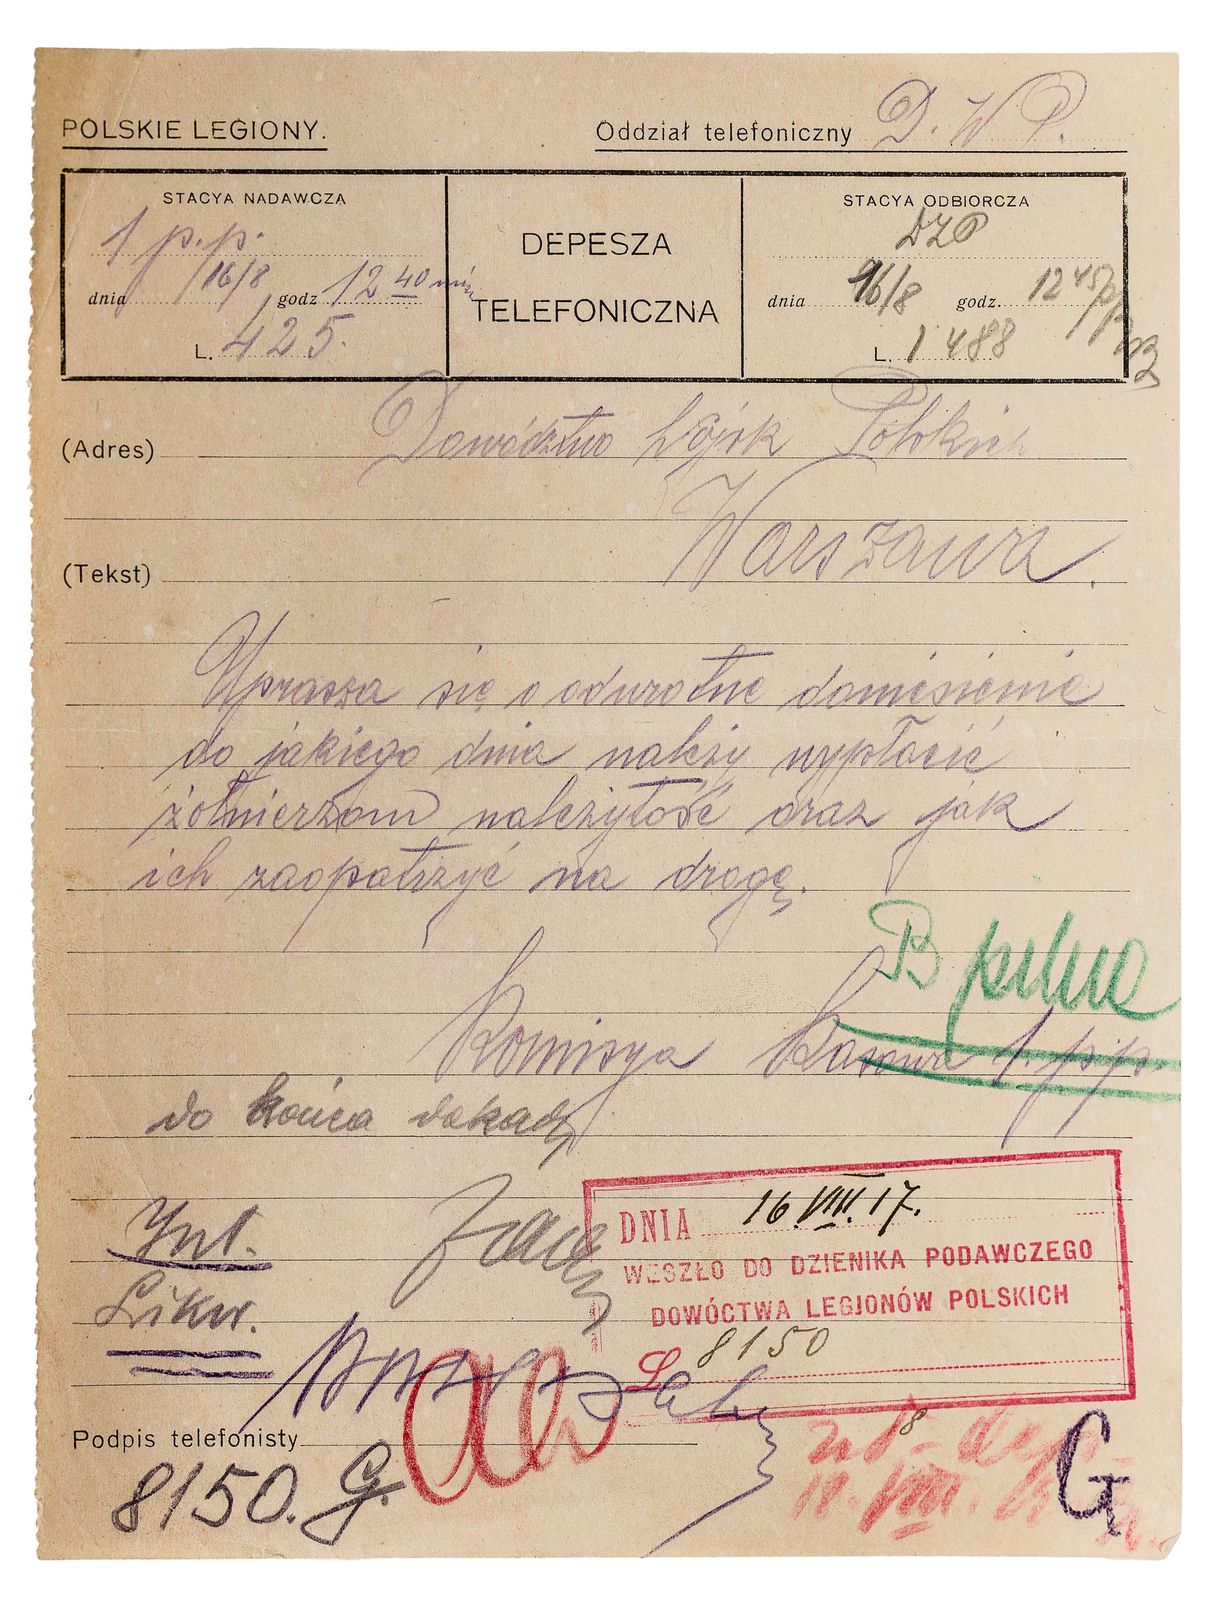 POLSKIE LEGIONY.
Oddział telefoniczny D. W. P.
STACYA NADAWCZA
1 p. p.
dnia 16/8, godz 12 40 min
L. 425.
DEPESZA
TELEFONICZNA
STACYA ODBIORCZA
dnia 16/8 godz. 12 45
L. 1488
(Adres) Dowództwo Wojsk Polskich
Warszawa.
(Tekst)
Uprasza się o odwrotne doniesienie
do jakiego dnia należy wypłacić
żołnierzom należytość oraz jak
ich zaopatrzyć na drogę.
B pilne
Komisya Kasowa 1. p. p.
do końca dekady
Int.
Likw.
DNIA 16. VIII. 17.
WESZŁO DO DZIENIKA PODAWCZEGO
DOWÓCTWA LEGJONÓW POLSKICH
L. 8150
Podpis telefonisty
8150. G.
G